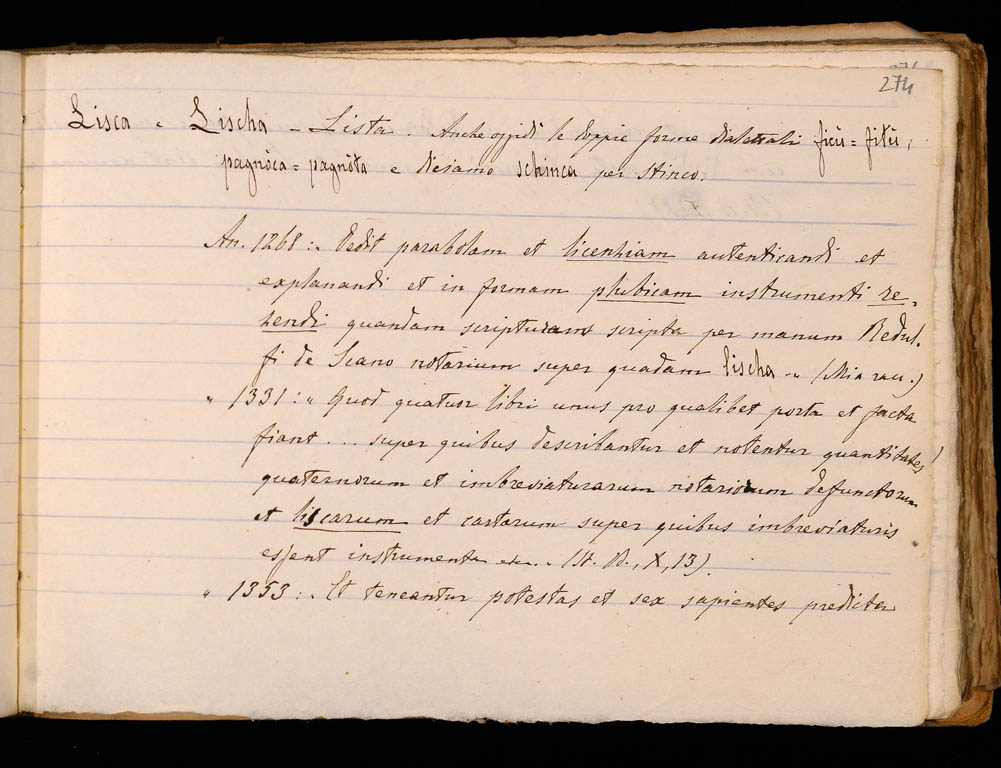 274
Lisca e Lischa - Lista. Anche oggidì le doppie forme dialettali ficü = fitü,
pagnòca = pagnòta e diciamo schinca per stinco.
An. 1268: „ Dedit parabolam et licentiam autenticandi et
explanandi et in formam plubicam instrumenti re-
hendi quandam scripturam scripta per manum Redul-
fi de Scano notarium super quadam lischa „ (Mia racc.)
„ 1331: „ Quod quatuor libri unus pro qualibet porta et facta
fiant ... super quibus describantur et notentur quantitates
quaternorum et imbreviaturarum notariorum defunctorum
et liscarum et cartarum super quibus imbreviaturis
essent instrumenta etc. „ (St. B., X, 13).
„ 1353: „ Et teneantur potestas et sex sapientes predicta